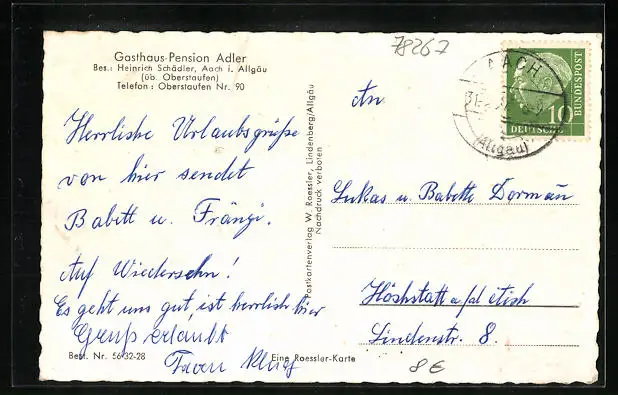 78267
Gasthaus-Pension Adler
Bes.: Heinrich Schädler, Aach i. Allgäu
(üb. Oberstaufen)
Telefon: Oberstaufen Nr. 90
Herrliche Urlaubsgrüße
von hier sendet
Babett u. Frängi.
Auf Wiedersehn!
Es geht uns gut, ist herrlich hier
Gruß erlaubt
Best. Nr. 56-32-28
Eine Roessler-Karte
Postkartenverlag W. Roessler, Lindenberg/Allgäu
Nachdruck verboten
AACH
(Allgäu)
10
DEUTSCHE
BUNDESPOST
An
Lukas u. Babette Dormän
Höchstatt a/d
Lindenstr. 8.
8€